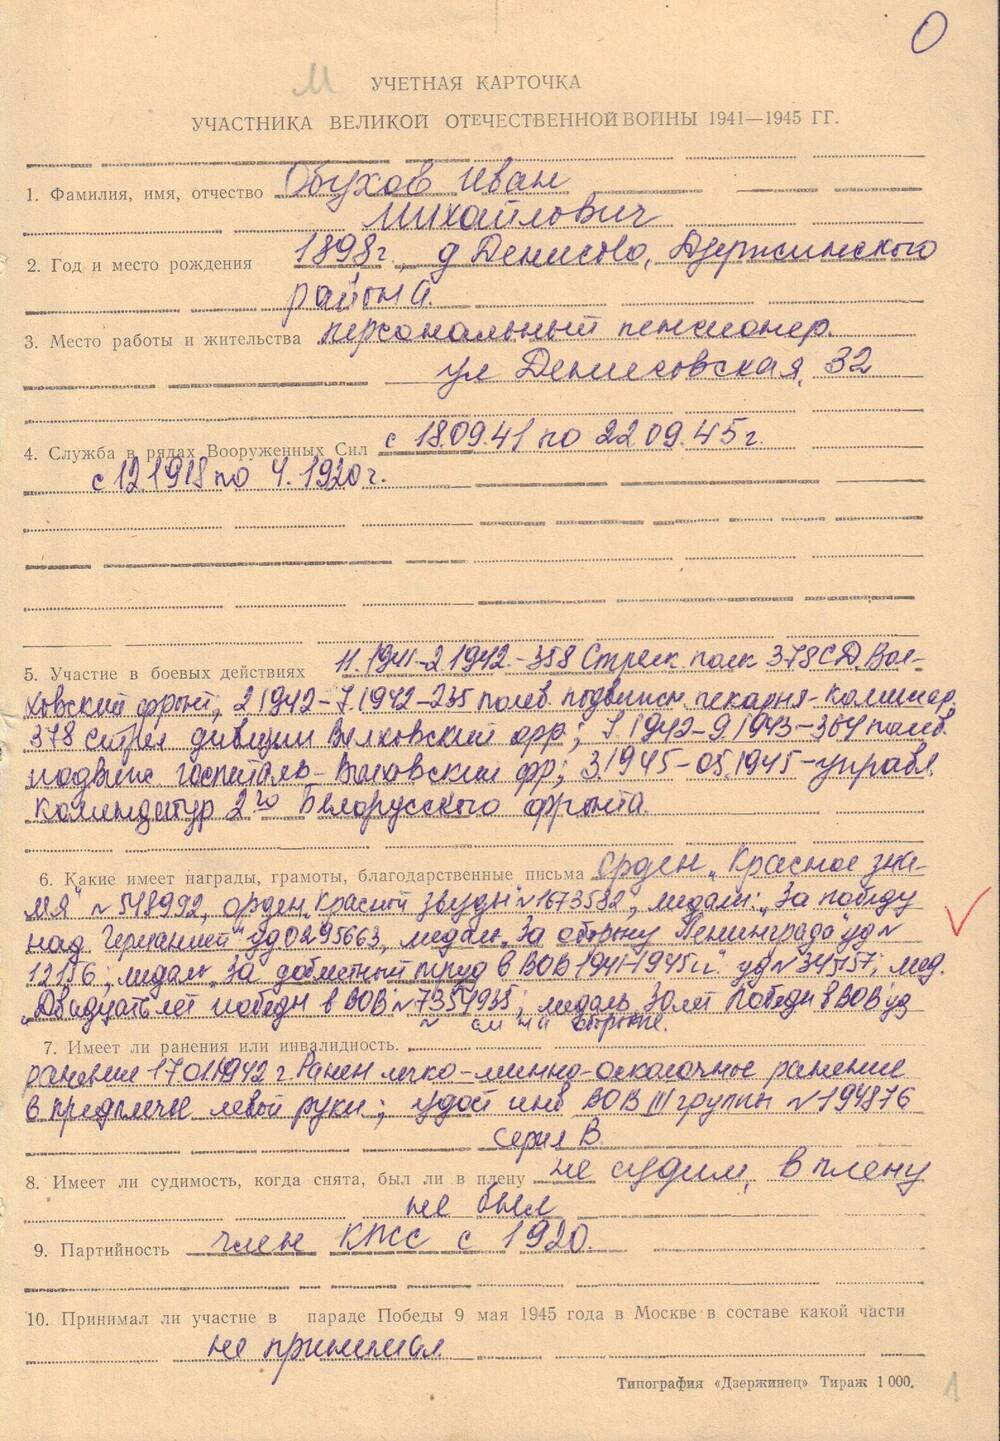 О
М УЧЕТНАЯ КАРТОЧКА
УЧАСТНИКА ВЕЛИКОЙ ОТЕЧЕСТВЕННОЙ ВОЙНЫ 1941—1945 ГГ.
1. Фамилия, имя, отчество Обухов Иван
Михайлович
2. Год и место рождения 1898г., д Денисово, Дзержинского
района.
3. Место работы и жительства персональный пенсионер.
ул Денисовская, 32
4. Служба в рядах Вооруженных Сил с 18.09.41 по 22 09.45г.
с 12.1918 по 4.1920г.
5. Участие в боевых действиях 11.1941-2.1942.-358 Стрелк. полк 378 СД, Вол-
ховский фронт; 2.1942-7.1942-235 полев. подвижн. пекарня-
378 стрел дивизии Волховский фр; 7.1942-9.1943-364 полев.
подвиж госпиталь-Волховский фр; 3.1945-05.1945-управл.
комендатур 2го Белорусского фронта.
6. Какие имеет награды, грамоты, благодарственные письма Орден „Красное зна-
мя" №548992, орден „Красной звезды" №1673582, медали: „За победу
над Германией" уд0295663, медаль „За оборону Ленинграда" уд№
12156; медаль „За доблестный труд в ВОВ 1941-1945гг" уд №345757; мед.
„Двадцать лет победы в ВОВ" №7354935; медаль 30 лет Победы в ВОВ уд
№
7. Имеет ли ранения или инвалидность.
ранение 17.01.1942 г. Ранен легко-минно-осколочное ранение
в предплечье левой руки; удост инв ВОВ III группы №194876
серия В.
8. Имеет ли судимость, когда снята, был ли в плену не судим, в плену
не был
9. Партийность член КПСС с 1920.
10. Принимал ли участие в параде Победы 9 мая 1945 года в Москве в составе какой части
не принимал
Типография «Дзержинец» Тираж 1 000.
1